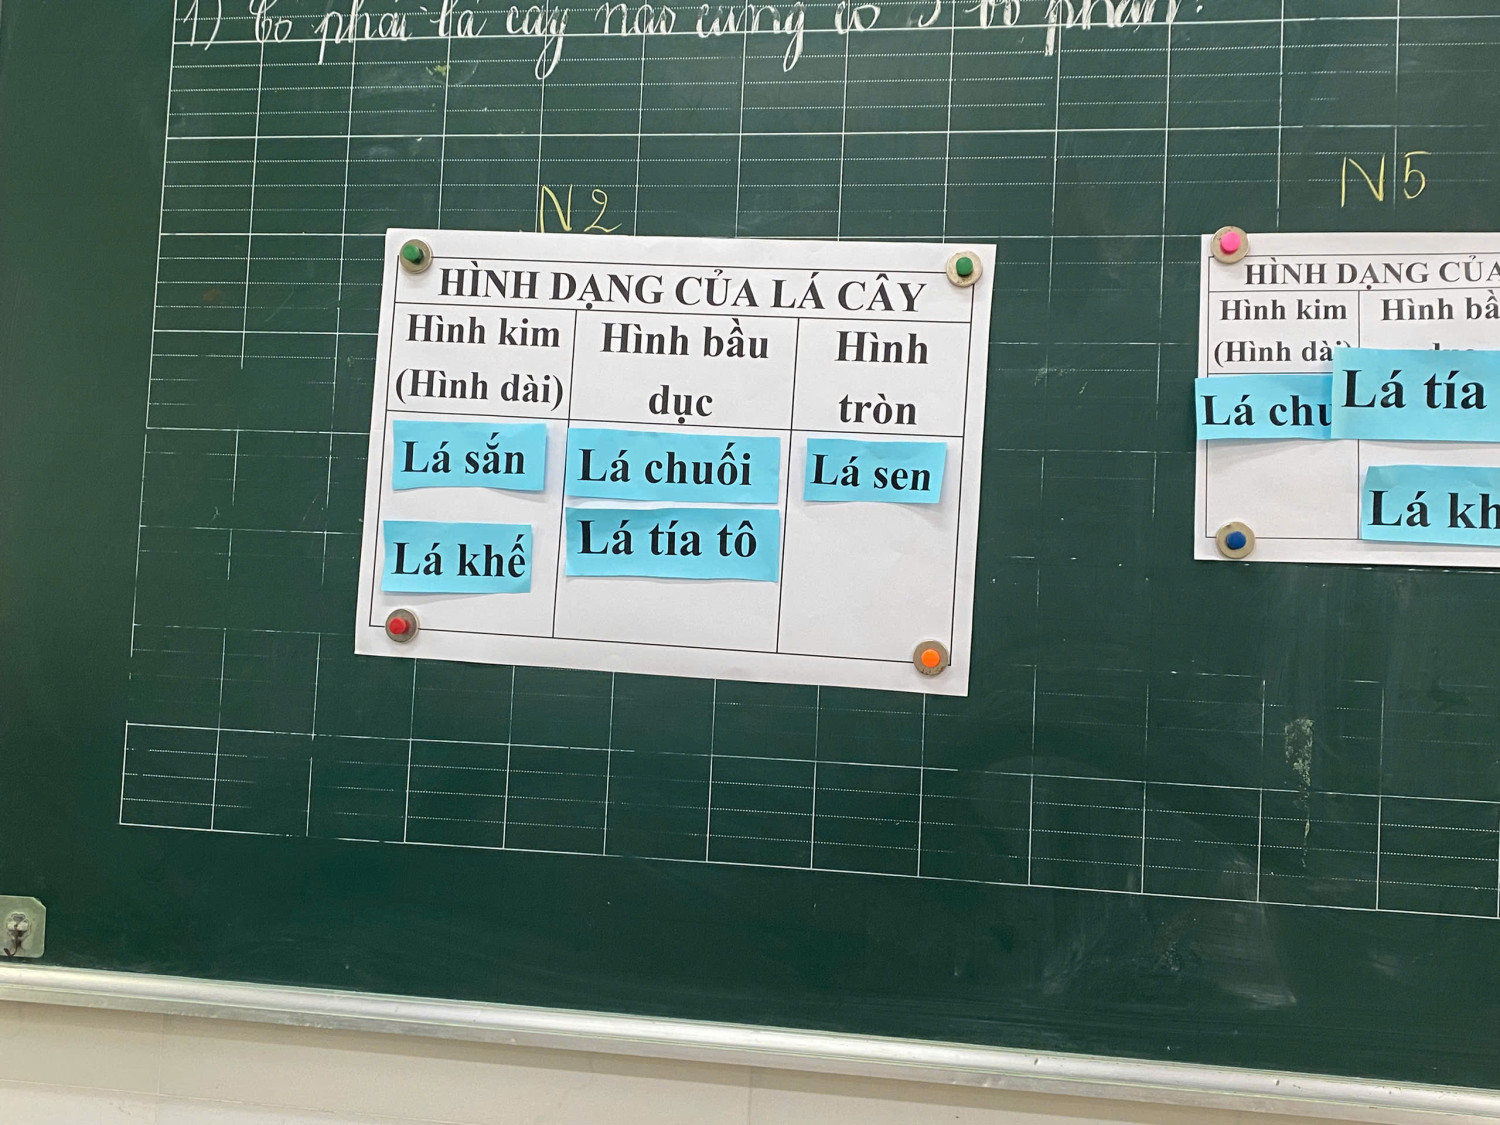 1) Có phải lá cây nào cũng có 3 bộ phận?
N2
HÌNH DẠNG CỦA LÁ CÂY
Hình kim
(Hình dài)
Hình bầu
dục
Hình
tròn
Lá sắn
Lá chuối
Lá sen
Lá khế
Lá tía tô
N5
HÌNH DẠNG CỦA
Hình kim
(Hình dài)
Hình bầ
Lá chu
Lá tía
Lá kh